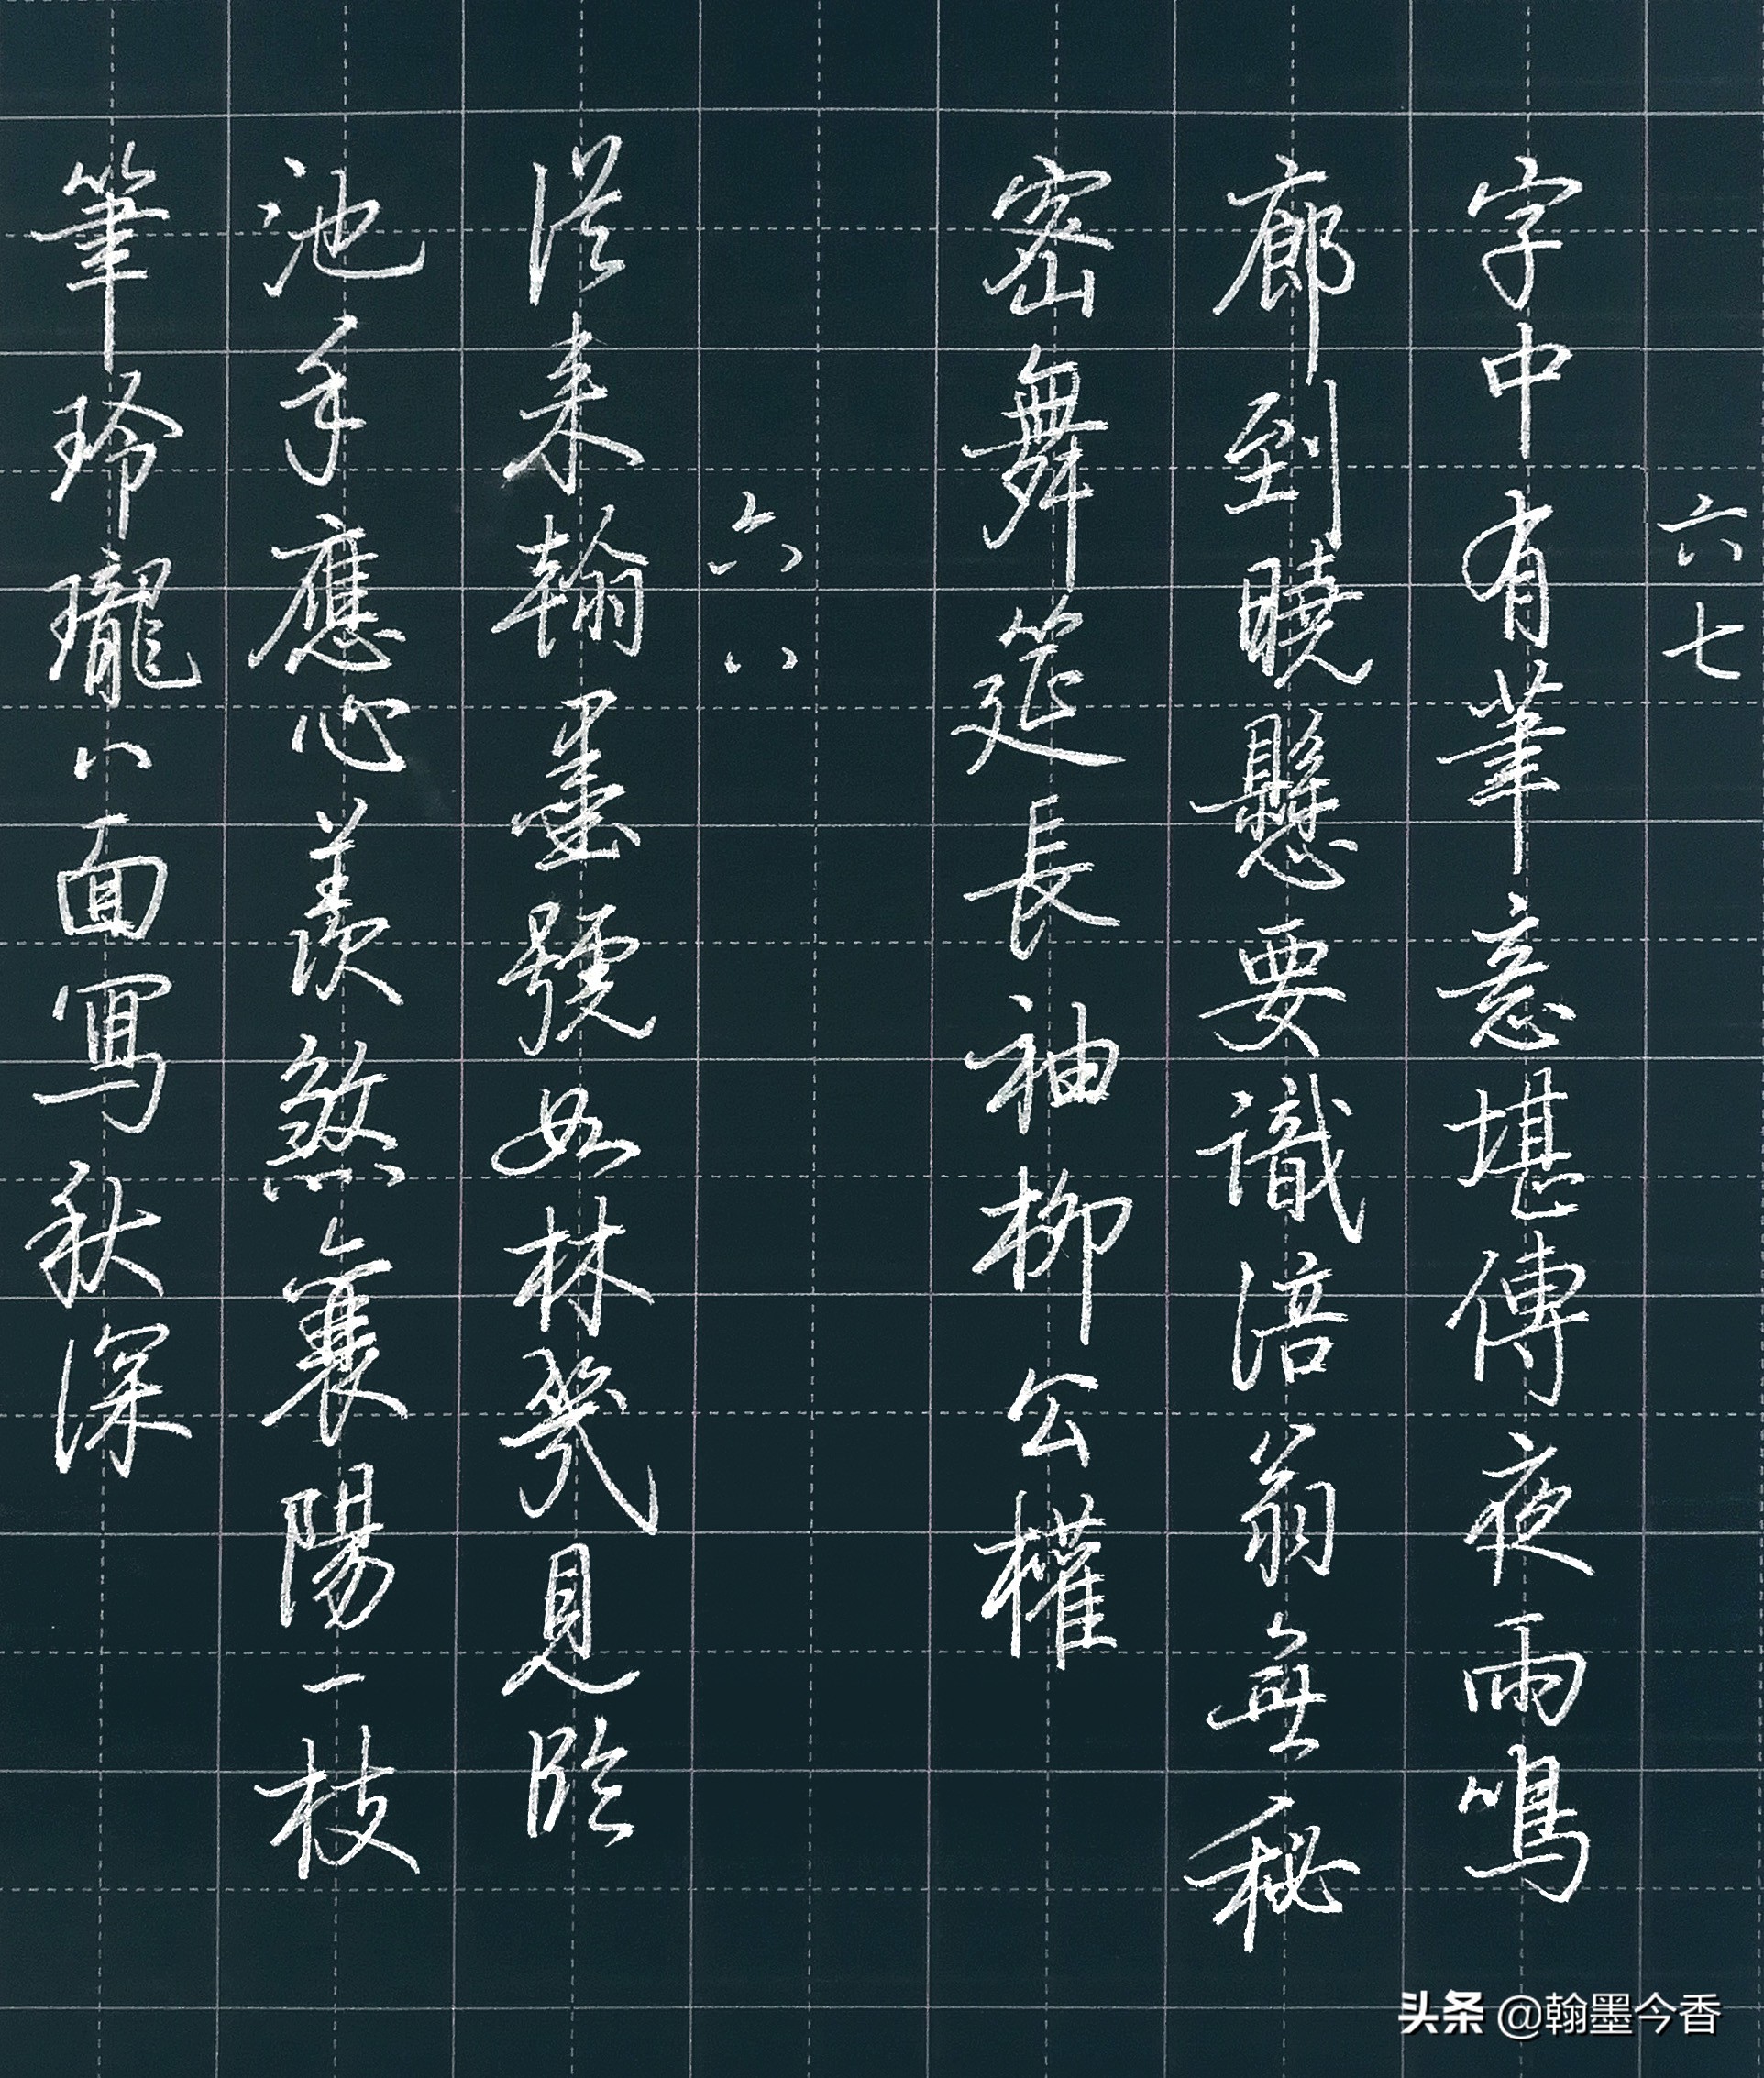 六七
字中有筆意堪傳夜雨鳴
廊到曉懸要識涪翁無秘
密舞筵長袖柳公權
六八
從来翰墨號如林幾見臨
池手應心羡煞襄陽一枝
筆玲瓏八面寫秋深
头条 @翰墨今香